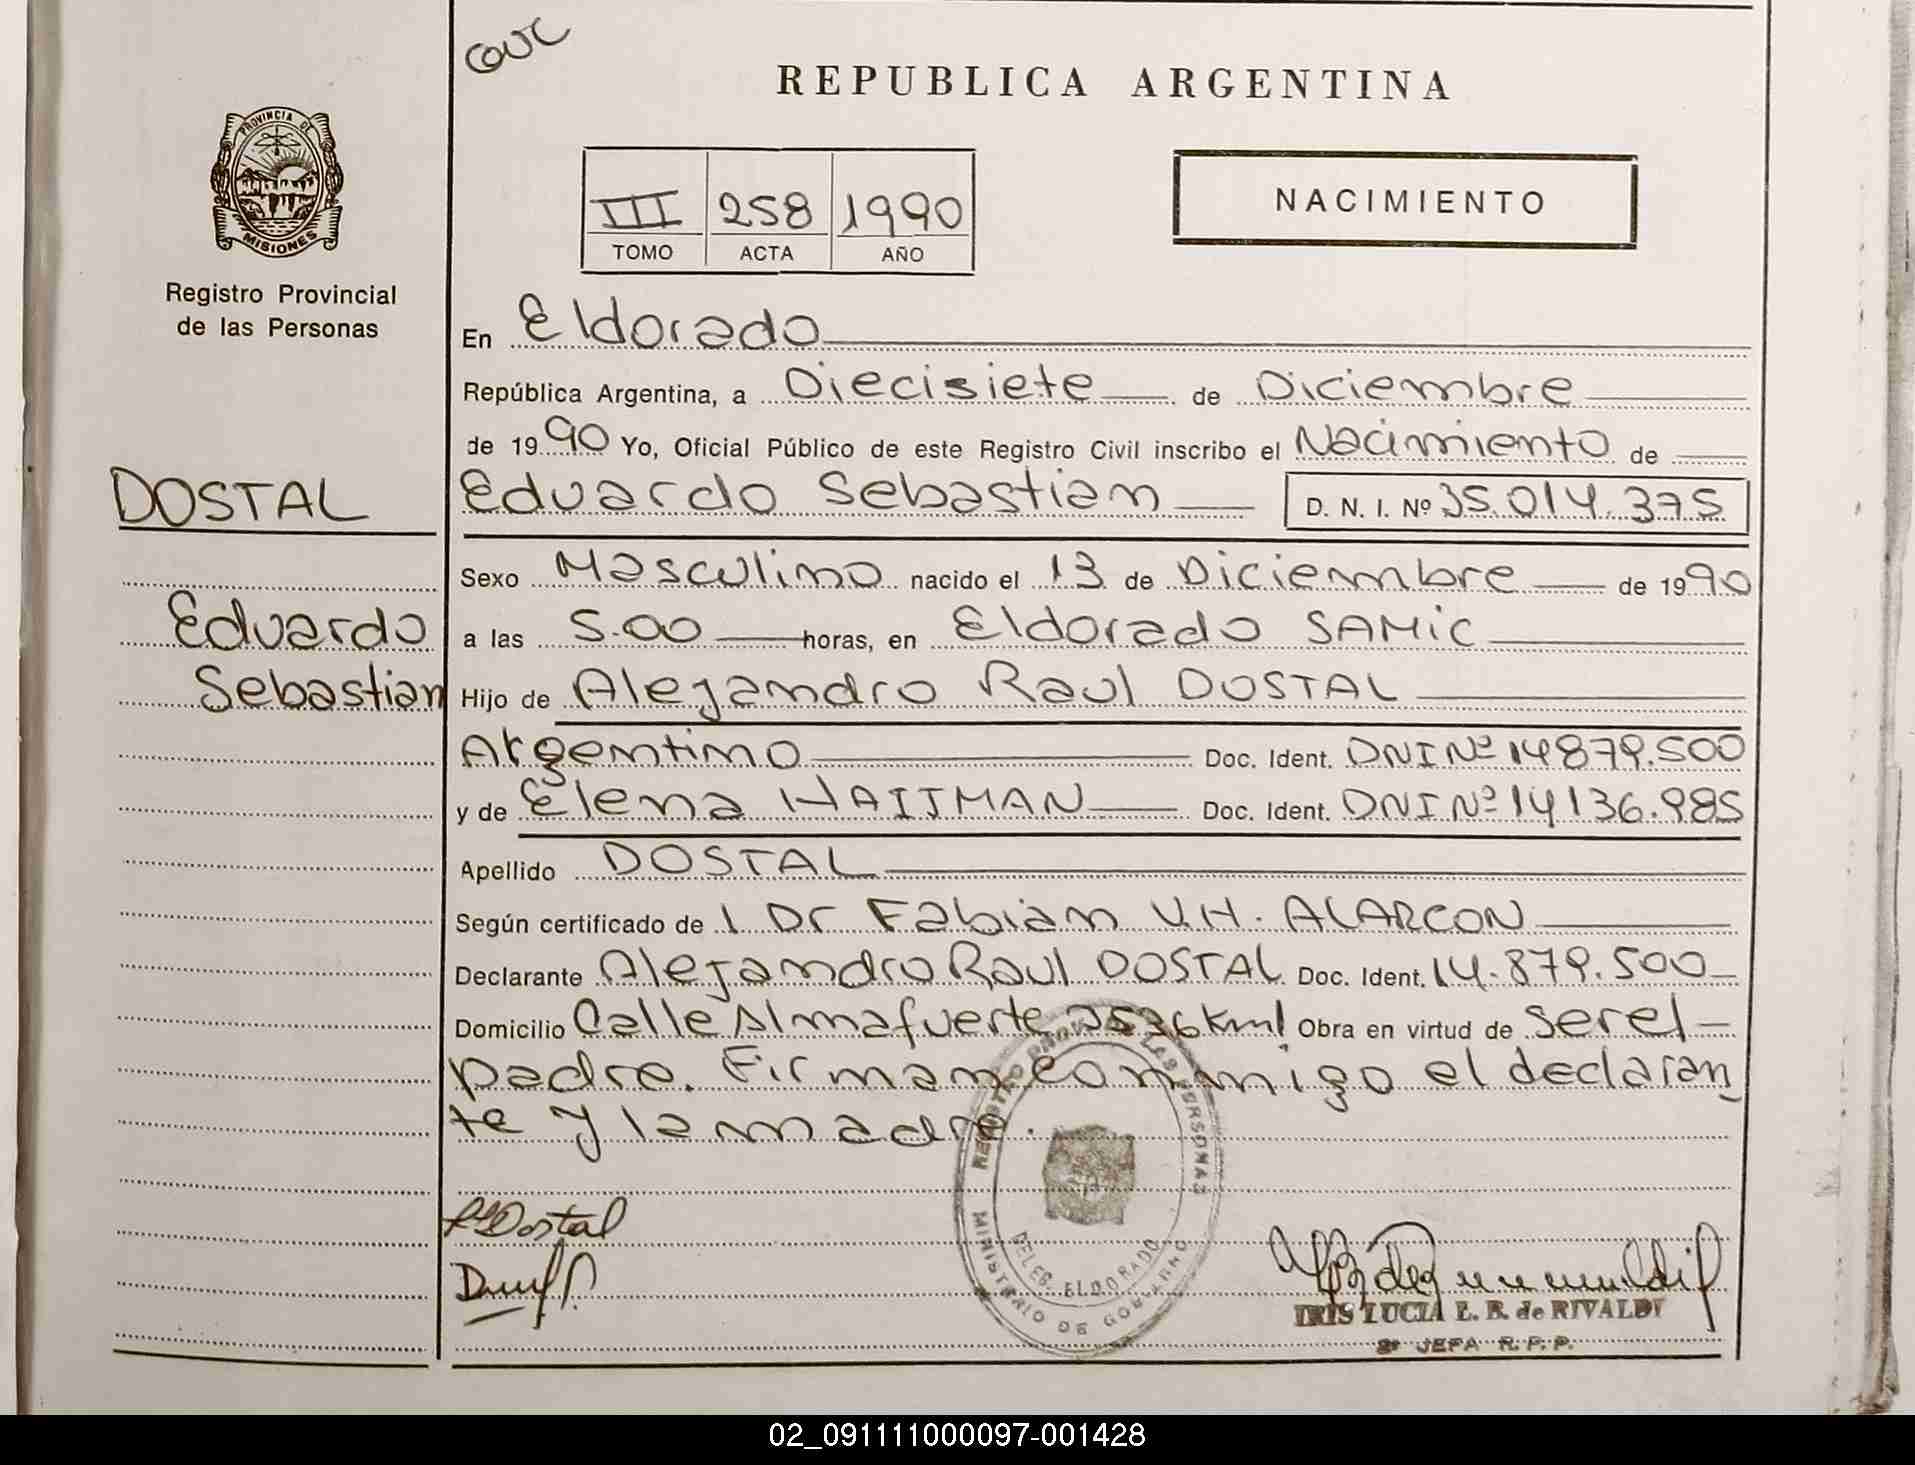 COUC
REPUBLICA ARGENTINA
PROVINCIA DE
MISIONES
Registro Provincial
de las Personas
III 258 1990
TOMO ACTA AÑO
NACIMIENTO
DOSTAL
Eduardo
Sebastian
En Eldorado
República Argentina, a Diecisiete de Diciembre
de 1990 Yo, Oficial Público de este Registro Civil inscribo el Nacimiento de
Eduardo Sebastian D. N. I. Nº 35.014.375
Sexo Masculino nacido el 13 de Diciembre de 1990
a las 5.00 horas, en Eldorado SAMIC
Hijo de Alejandro Raul DOSTAL
Argentino Doc. Ident. DNI Nº 14879.500
y de Elena HAIJMAN Doc. Ident. DNI Nº 14136.985
Apellido DOSTAL
Según certificado de l Dr Fabian V.H. ALARCON
Declarante Alejandro Raul DOSTAL Doc. Ident. 14.879.500
Domicilio Calle Almafuerte 2536 Km1 Obra en virtud de ser el
padre. Firman conmigo el declaran
te y la madre.
REGISTRO PROV. DE LAS PERSONAS
MINISTERIO DE GOBIERNO
DELEG. ELDORADO
Dostal
IRIS LUCIA E. B. de RIVALDI
2ª JEFA R. P. P.
02_091111000097-001428